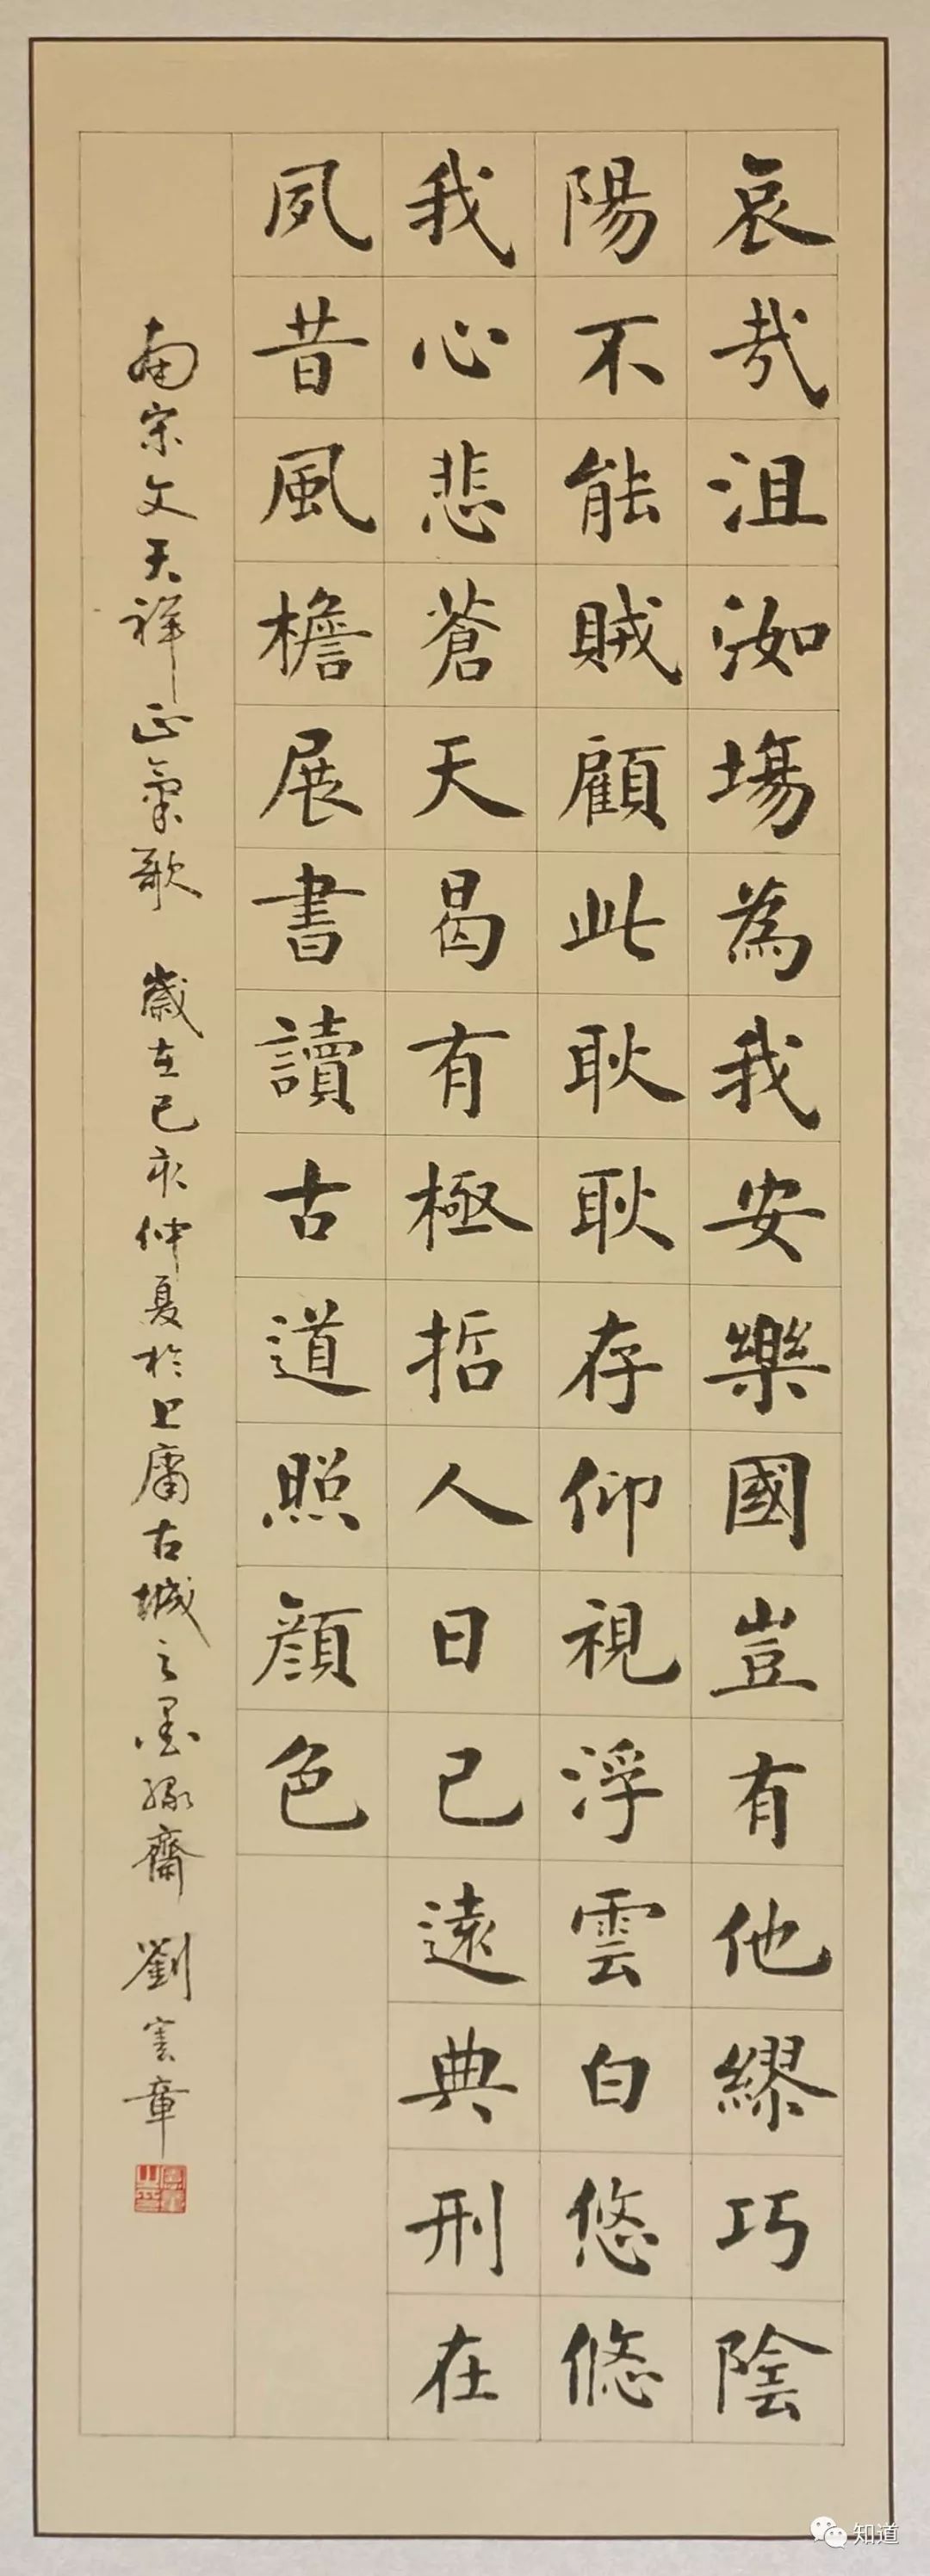 哀哉沮洳場為我安樂國豈有他繆巧陰
陽不能賊顧此耿耿存仰視浮雲白悠悠
我心悲蒼天曷有極哲人日已遠典刑在
夙昔風檐展書讀古道照顏色
南宋文天祥正氣歌 歲在己亥仲夏於上庸古城之墨緣齋 劉雲章
知道